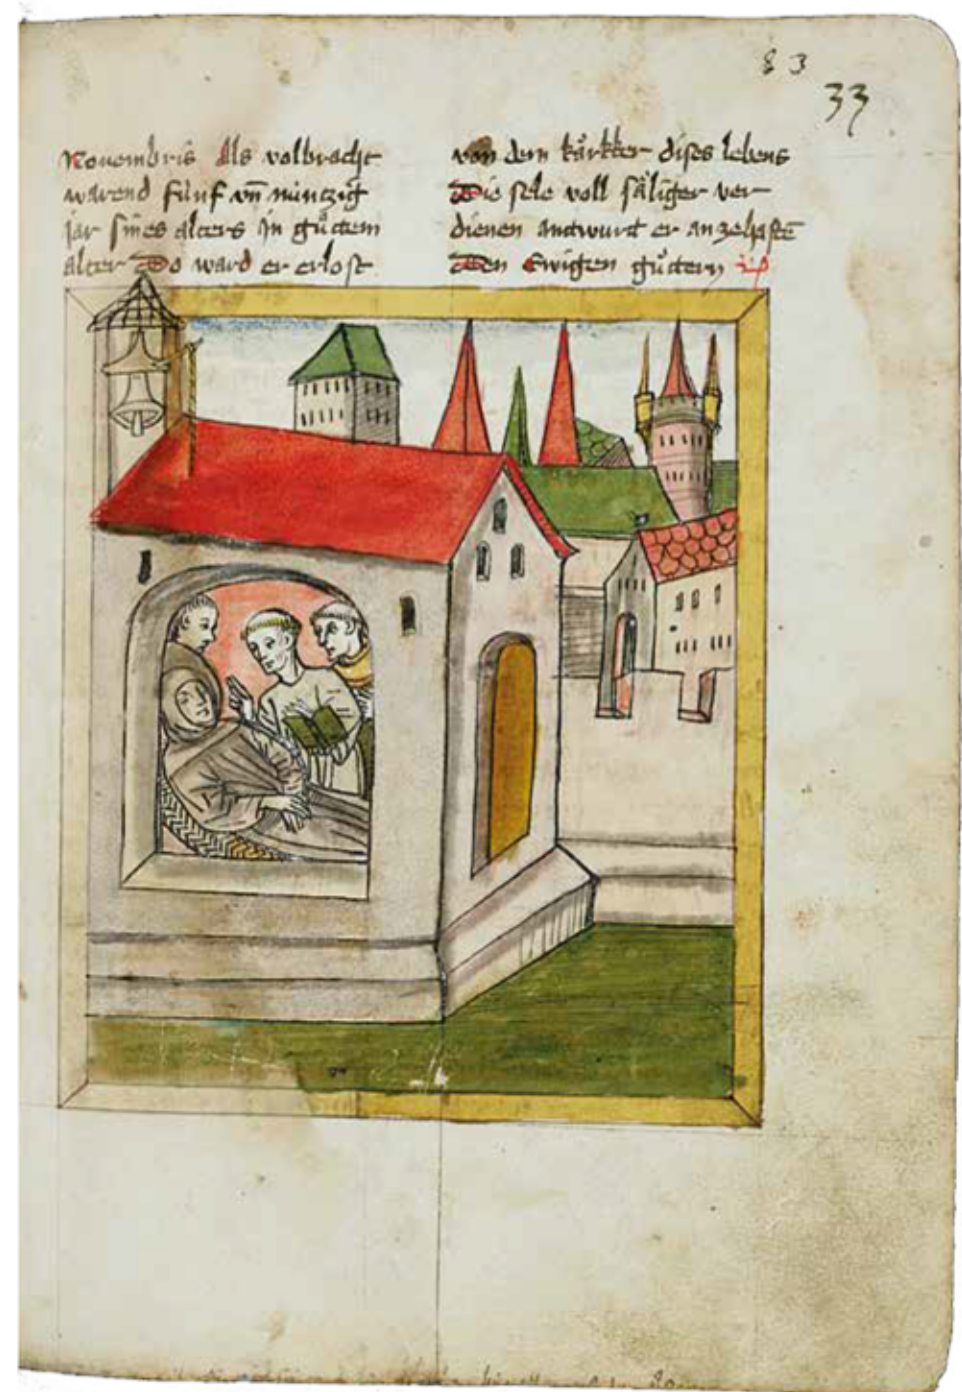 83
33
Nouembris Als volbracht
warend fünf vn̄ núnczig
jar sines alters jn gůttem
alter Do ward er erlost
von dem kärkker dises lebens
Die sele voll säliger ver
dienen antwurt er an zehaftē
Den Ewigen gůttern